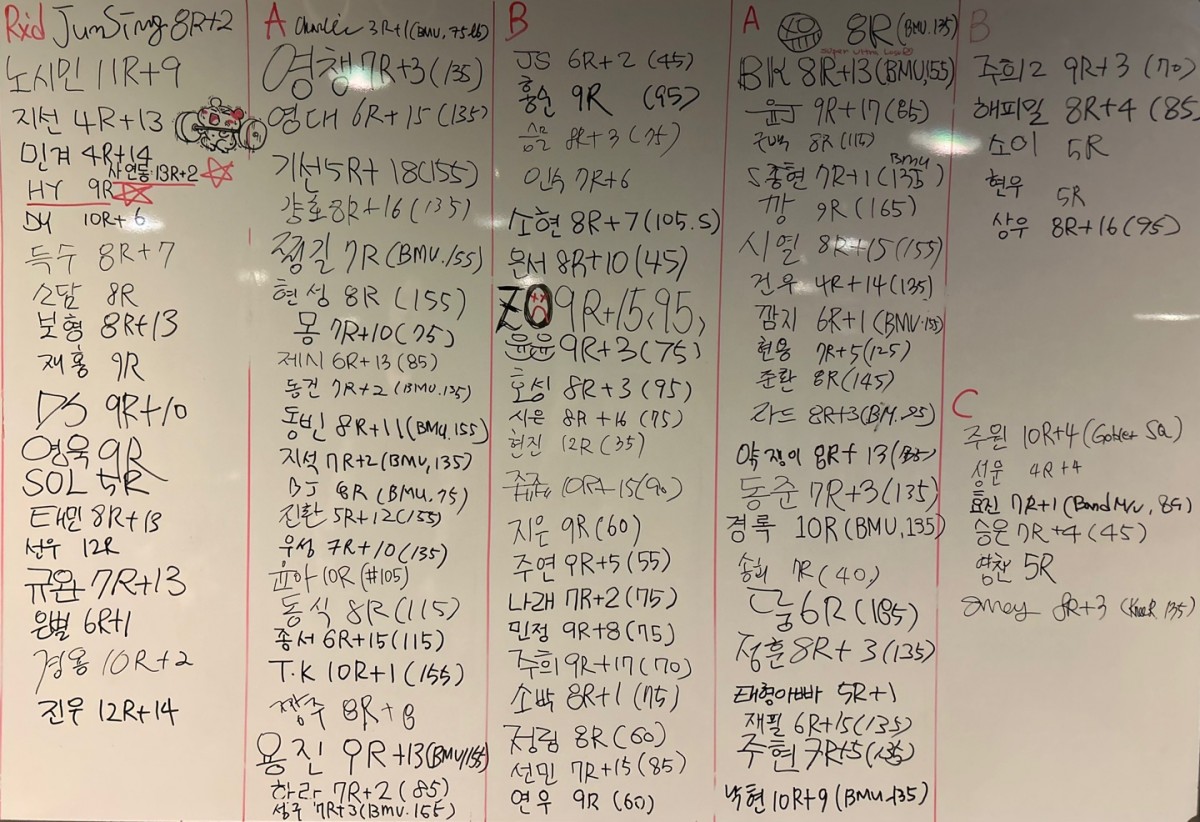 Rxd JunSing 8R+2
노시민 11R+9
지선 4R+13
민겨 4R+14
사연동 13R+2
HY 9R
DH 10R+6
득수 8R+7
소담 8R
보형 8R+13
재홍 9R
DS 9R+10
영욱 9R
SOL 5R
태민 8R+13
선우 12R
규완 7R+13
은별 6R+1
경용 10R+2
진우 12R+14
A Charlie 3R+1(BMU, 75lb)
영챙 7R+3(135)
영대 6R+15(135)
기선 5R+18(155)
강호 8R+16(135)
쩡길 7R(BMU.155)
현성 8R (155)
몽 7R+10(75)
제시 6R+13(85)
동건 7R+2(BMU.135)
동빈 8R+11(BMU.155)
지석 7R+2(BMU,135)
BJ 8R (BMU.75)
진환 5R+12(155)
우성 7R+10(135)
윤아 10R(#105)
동식 8R(115)
종서 6R+15(115)
T.K 10R+1(155)
짱주 8R+6
용진 9R+13(BMU/155)
하라 7R+2(85)
성주 7R+3(BMU.155)
B
JS 6R+2(45)
홍순 9R (95)
8R+3(75)
인숙 7R+6
소현 8R+7(105.5)
은서 8R+10(45)
ZO 9R+15(95)
윤윤 9R+3(75)
호성 8R+3(95)
시은 8R+16(75)
현진 12R(35)
쥬쥬 10R+15(90)
지은 9R(60)
주연 9R+5(55)
나래 7R+2(75)
민정 9R+8(75)
주희 9R+17(70)
소박 8R+1(75)
정림 8R(60)
선민 7R+15(85)
연우 9R(60)
A 8R(BMU.135)
BK 8R+13(BMU,155)
윤J 9R+17(85)
8R(115)
S종현 7R+1(BMU 135)
깡 9R(165)
시열 8R+15(155)
건우 4R+14(135)
깜지 6R+1(BMU.155)
현용 7R+5(125)
준환 8R(145)
라드 8R+3(BM.95)
약쟁이 8R+13(135)
동준 7R+3(135)
경록 10R(BMU,135)
송희 7R(40)
6R(185)
정훈 8R+3(135)
태형아빠 5R+1
재필 6R+15(135)
주현 7R+5(135)
낙현 10R+9(BMU.135)
B
주희2 9R+3(70)
해피밀 8R+4(85)
소이 5R
현우 5R
상우 8R+16(95)
C
주원 10R+4(Goblet SQ)
성문 4R+4
효진 7R+1(Band M/U, 85)
승은 7R+4(45)
영찬 5R
8R+3 (KneeR 135)